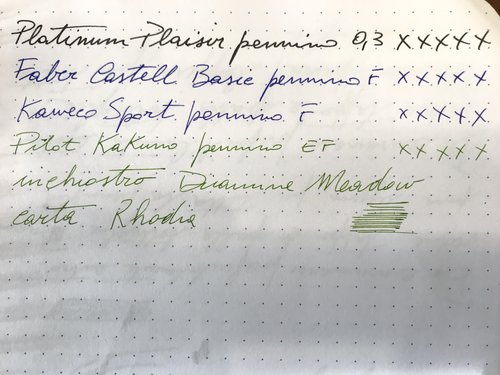 Platinum Plaisir pennino 0,3 xxxxx
Faber Castell Basic pennino F xxxxx
Kaweco Sport pennino F xxxxx
Pilot Kakuno pennino EF xxxxx
inchiostro Diamine Meadow
carta Rhodia